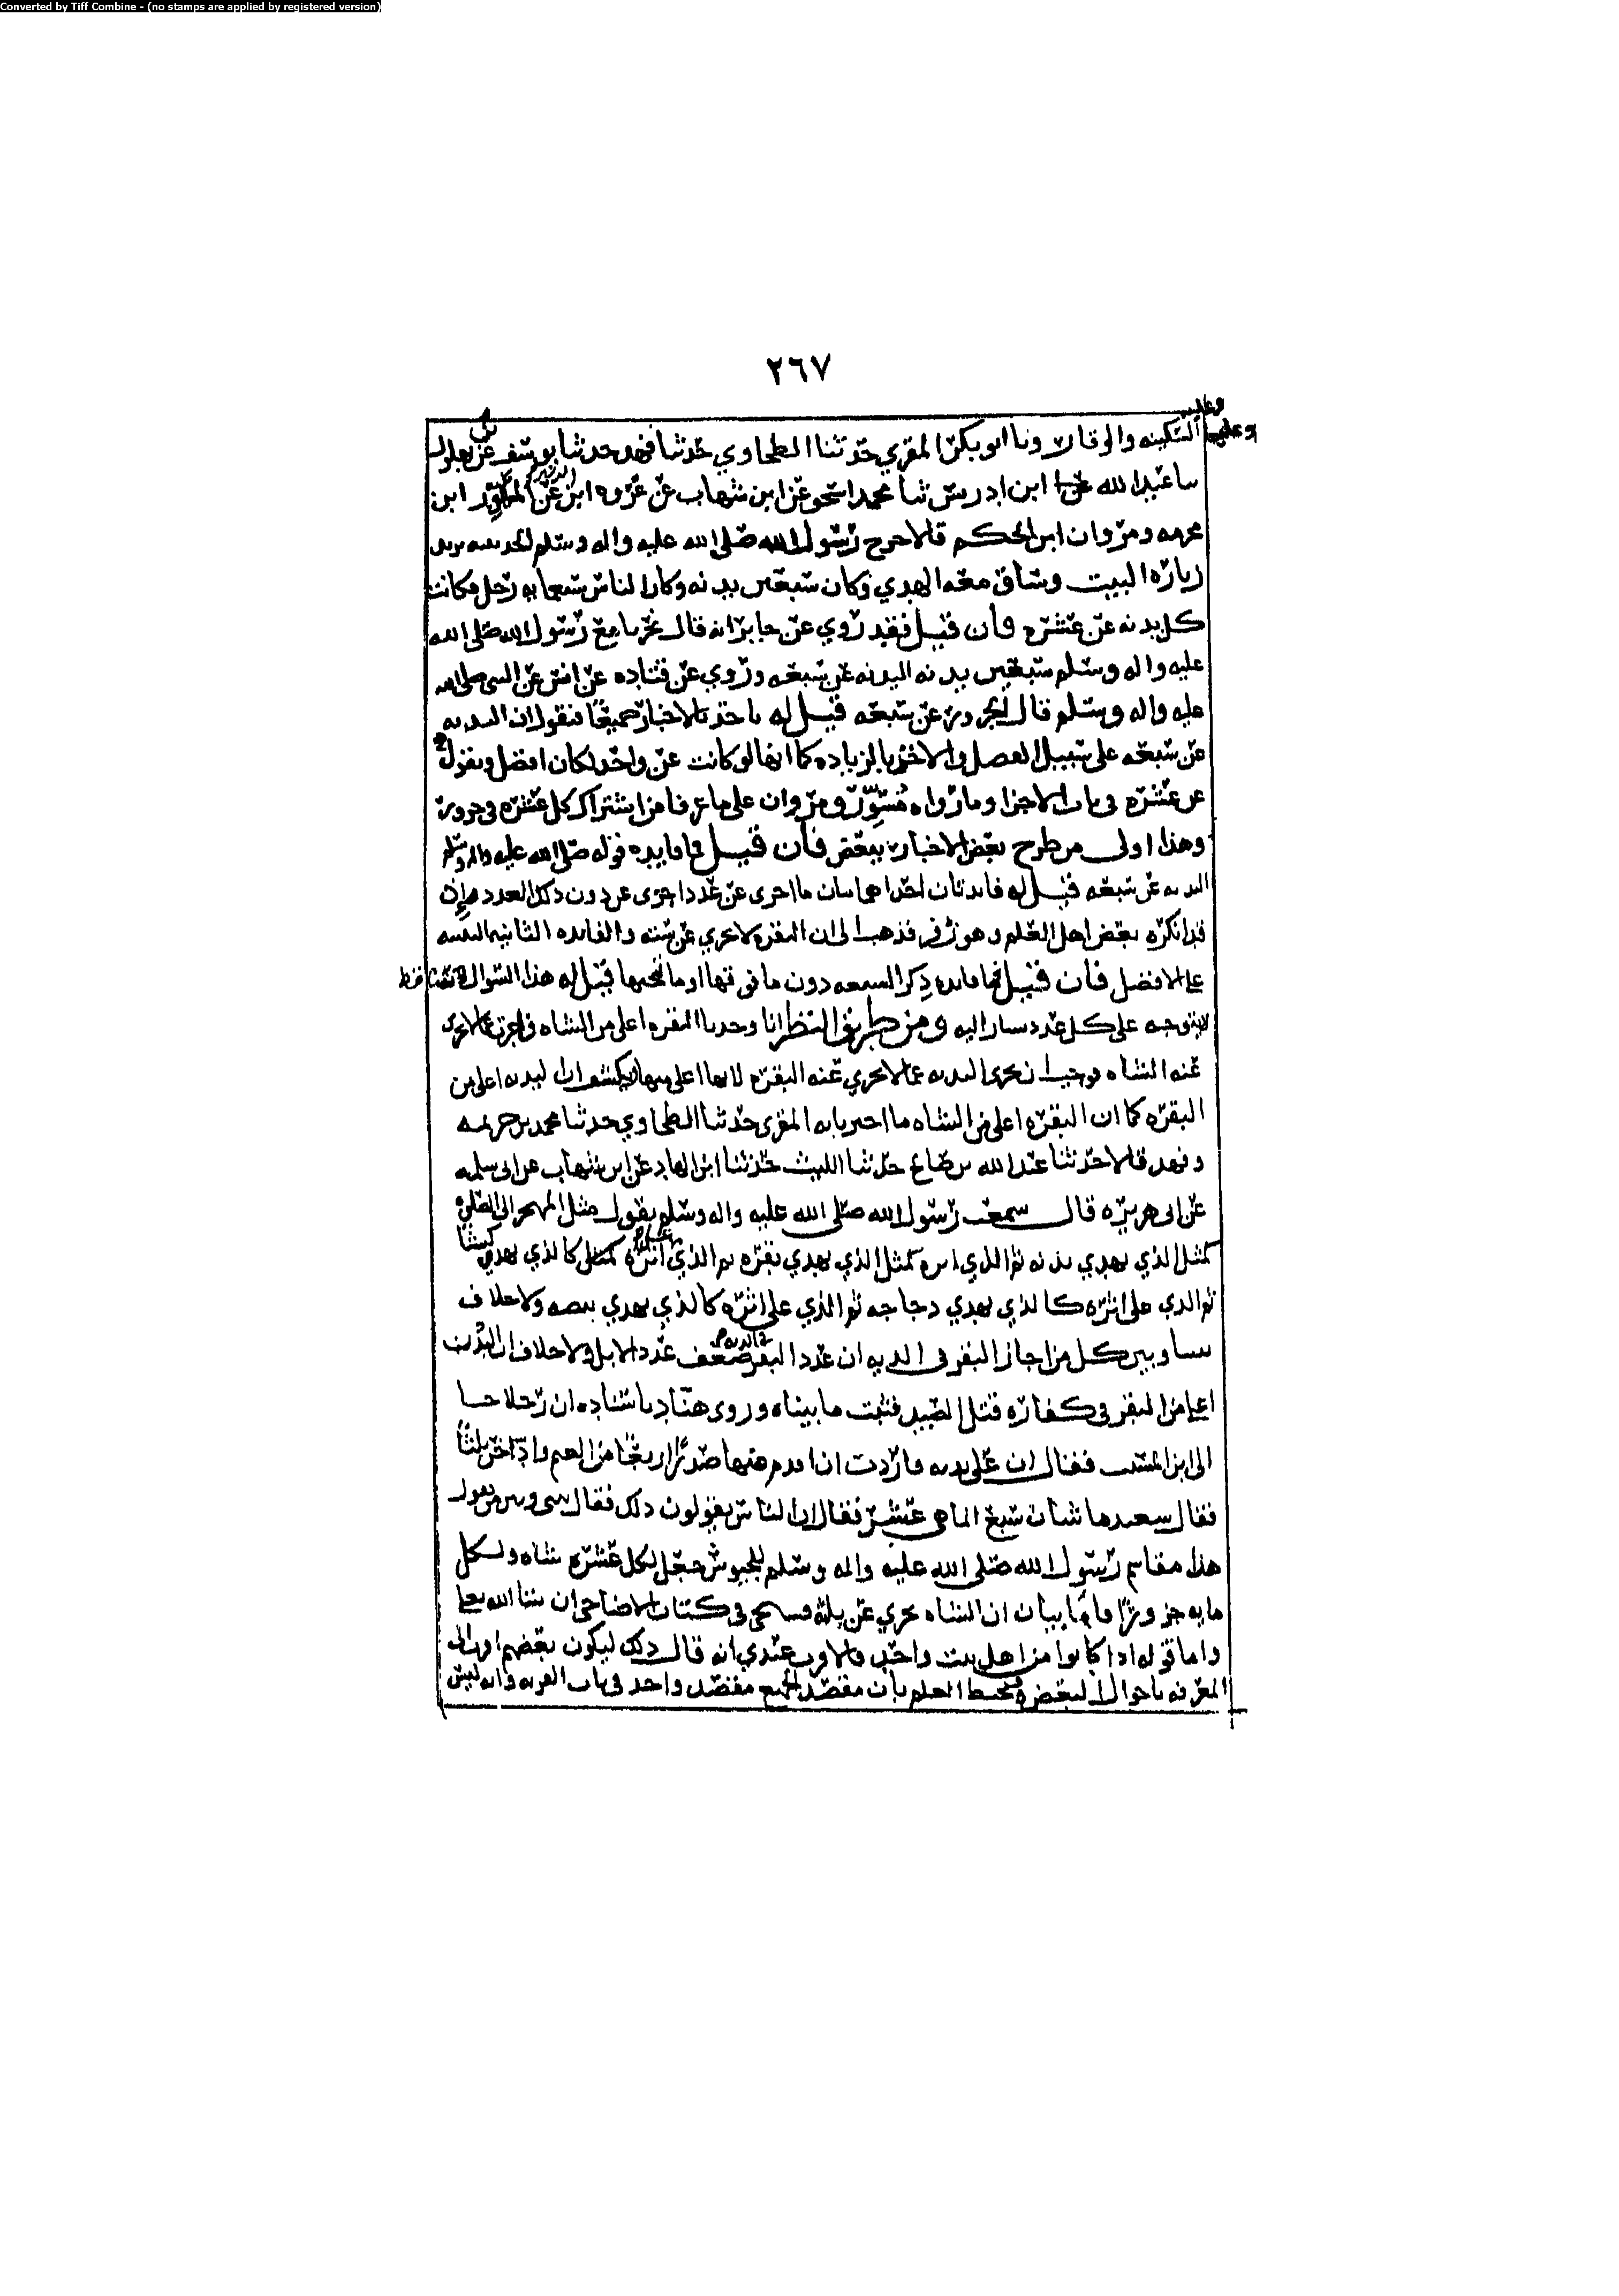 Converted by Tiff Combine - (no stamps are applied by registered version)
٢٦٧
وعليه
وعليهم السكينه والوقار ونا ابو بكر المقري حدثنا الطحاوي حدثنا فهد حدثنا يوسف بن بهلول
نا عبدالله ابن ادريس ثنا محمد اسحق عن ابن شهاب عن عروه ابن الزبير عن المسور ابن
مخرمه ومروان ابن الحكم قالا خرج رسول الله صلى الله عليه واله وسلم الحديبيه يريد
زياره البيت وساق معه الهدي وكان سبعين بدنه وكان الناس سبعمايه رجل وكانت
كل بدنه عن عشره فان قيل فقد روي عن جابر انه قال نحرنا مع رسول الله صلى الله
عليه واله وسلم سبعين بدنه البدنه عن سبعه وروي عن قتاده عن انس عن النبي صلى الله
عليه واله وسلم قال الجزور عن سبعه قيل له ناخذ بالاخبار جميعًا فنقول ان البدنه
عن سبعه على سبيل الفضل والاخذ بالزياده كما انها لو كانت عن واحد لكان افضل ونقول
عن عشره في باب الاجزا وما رواه مُسَوِّر ومروان على ما عرفا من اشتراك كل عشره في جزور
وهذا اولى من طرح بعض الاخبار ببعض فان قيل فما فايده قوله صلى الله عليه واله وسلم
البدنه عن سبعه قيل له فايدتان احداهما بيان ما اجزى عن عدد اجزى عن دون ذلك العدد وإن
قد انكره بعض اهل العلم وهو زفر فذهب الى ان البقره لا تجزي عن سته والفايده الثانيه التنبيه
على الافضل فان قيل فما فايده ذكر السبعه دون ما فوقها او ما تحتها قيل له هذا السوال
لا يتوجه على كل عدد يشار اليه ومن طريق النظر انا وجدنا البقره اعلى من الشاه فاجزت عما لا تجزى
عنه الشاه فوجب ان تجزى البدنه عما لا تجزي عنه البقره لانها اعلى منها يكشف ان البدنه اعلى من
البقره كما ان البقره اعلى من الشاه ما اخبرنا به المقرى حدثنا الطحاوي حدثنا محمد بن خزيمه
وفهد قالا حدثنا عبدالله بن صالح حدثنا الليث حدثنا ابن الهاد عن ابن شهاب عن ابى سلمه
عن ابى هريره قال سمعت رسول الله صلى الله عليه واله وسلم يقول مثل المهجر الى الصلوه
كمثل الذي يهدي بدنه ثم الذي اثره كمثل الذي يهدي بقره ثم الذي على اثره كالذي يهدي كبشًا
ثم الذي على اثره كالذي يهدي دجاجه ثم الذي على اثره كالذي يهدي بيضه ولا خلاف
بيننا وبين كل من اجاز البقر في الديه ان عدد البقر في الديه ضعف عدد الابل ولا خلاف ان البدن
اعلى من البقر في كفاره قتل الصيد فثبت ما بيناه وروى هناد باسناده ان رجلا جا
الى ابن المسيب فقال ان علي بدنه فاردت ان اقدم منها صدرًا اربعًا من الغنم واؤخر ثلثًا
فقال سعيد ما شان سبع انما هى عشر فقال ان الناس يقولون ذلك فقال بيني وبين من يقول
هذا مقاسم رسول الله صلى الله عليه واله وسلم للجيوش جعل لكل عشره شاه ولكل
مايه جزورًا فاما بيان ان الشاه تجزي عن ثلثه فسيجي في كتاب الاضاحي ان شا الله تعالى
واما قوله اذا كانوا من اهل بيت واحد فالاقرب عندي انه قال ذلك ليكون بعضهم اقرب الى
المعرفه باحوال البعض ويحيط العلم بان مقصد الجميع مقصد واحد في باب القربه وانه ليس